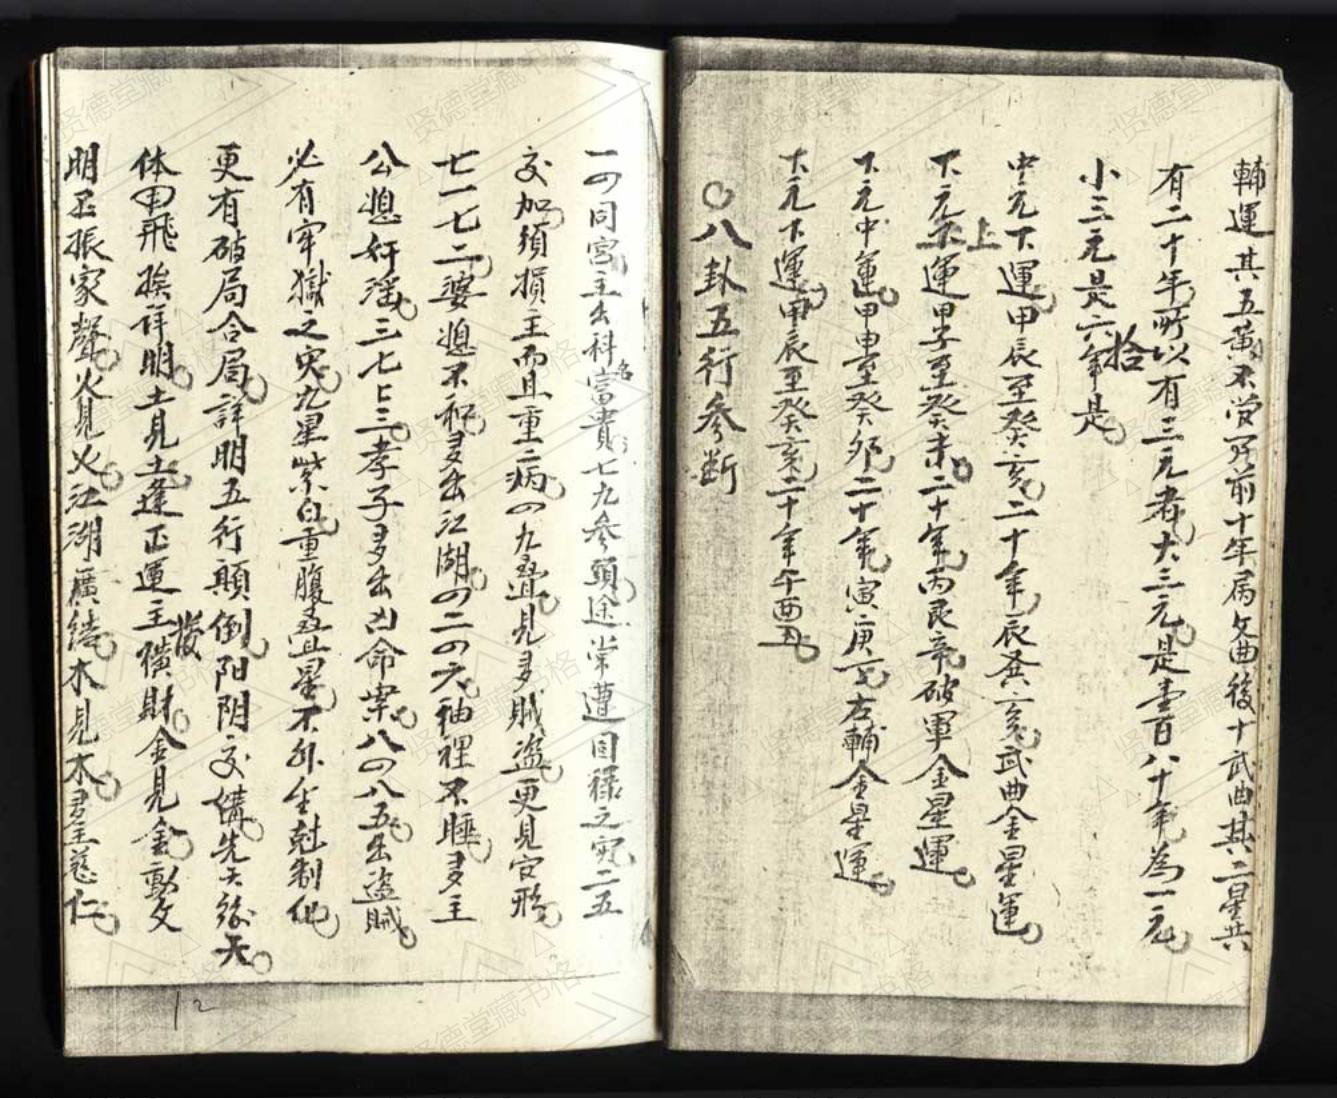 輔運其五黃不當另前十年屬文曲後十武曲其二星共
有二十年所以有三元者大三元是壹百八十年為一元
小三元是六拾年是
中元下運甲辰至癸亥二十年辰巽亥武曲金星運
下元上運甲子至癸未二十年丙艮辛破軍金星運
下元中運甲申至癸卯二十年寅庚丁左輔金星運
下元下運甲辰至癸亥二十年午酉丑
八卦五行參斷
一四同宮主出科名富貴七九參頭途常遭回祿之灾二五
交加須損主而且重二病四九疊見多賊盜更見官形
七一七二婆媳不和多出江湖四二四六袖裡不睡多主
公媳奸淫三七七三孝子多出凶命案八四八五出盜賊
必有牢獄之灾九星紫白重腹疊星不外生尅制化
更有破局合局詳明五行顛倒阳阴交媾先天後天
体用飛挨詳明土見土逢正運主發橫財金見金勤文
明丕振家聲火見火江湖廣結木見木君主慈仁
12
贤德堂藏书格